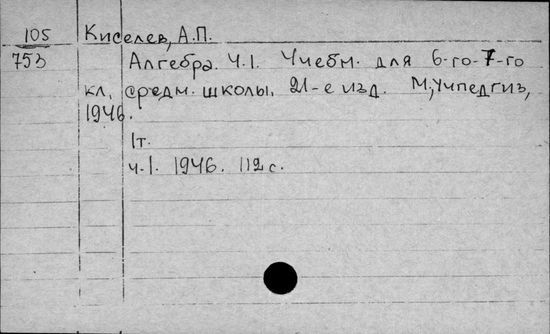 105 Киселев, А.П.
753 Алгебра. Ч.1. Учебн. для 6-го-7-го
кл. средн. школы. 21-е изд. М., Учпедгиз,
1946.
1т.
ч.1. 1946. 112 с.